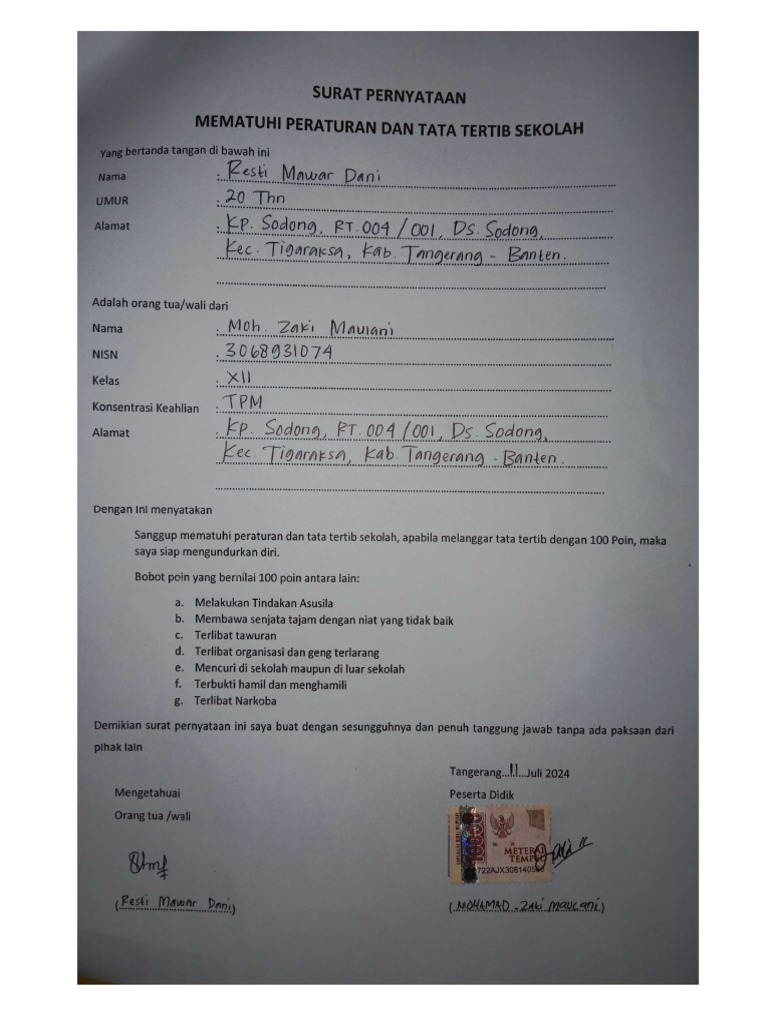 SURAT PERNYATAAN
MEMATUHI PERATURAN DAN TATA TERTIB SEKOLAH
Yang bertanda tangan di bawah ini
Nama : Resti Mawar Dani
UMUR : 20 Thn
Alamat : Kp. Sodong, RT.004/001, Ds. Sodong,
Kec. Tigaraksa, Kab. Tangerang - Banten.
Adalah orang tua/wali dari
Nama : Moh. Zaki Maulani
NISN : 3068931074
Kelas : XII
Konsentrasi Keahlian : TPM
Alamat : Kp. Sodong, RT.004/001, Ds. Sodong,
Kec. Tigaraksa, Kab. Tangerang - Banten.
Dengan Ini menyatakan
Sanggup mematuhi peraturan dan tata tertib sekolah, apabila melanggar tata tertib dengan 100 Poin, maka
saya siap mengundurkan diri.
Bobot poin yang bernilai 100 poin antara lain:
a. Melakukan Tindakan Asusila
b. Membawa senjata tajam dengan niat yang tidak baik
c. Terlibat tawuran
d. Terlibat organisasi dan geng terlarang
e. Mencuri di sekolah maupun di luar sekolah
f. Terbukti hamil dan menghamili
g. Terlibat Narkoba
Demikian surat pernyataan ini saya buat dengan sesungguhnya dan penuh tanggung jawab tanpa ada paksaan dari
pihak lain
Tangerang...11...Juli 2024
Mengetahuai
Peserta Didik
Orang tua /wali
10000
METERAI
TEMPEL
(Resti Mawar Dani)
(MOHAMAD . Zaki Maulani)